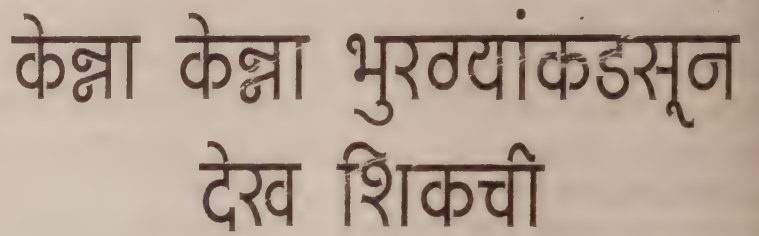 केन्ना केन्ना भुरग्यांकडसून
देख शिकची